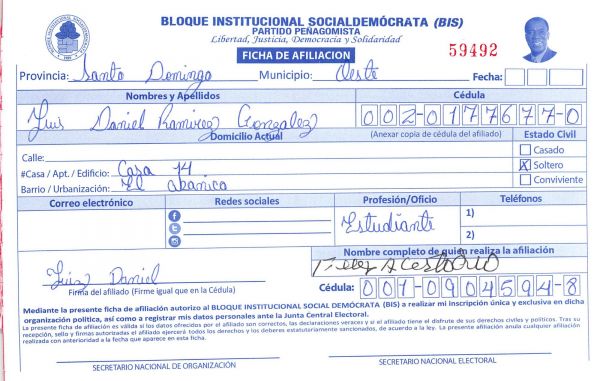 BLOQUE INSTITUCIONAL SOCIALDEMÓCRATA (BIS)
PARTIDO PEÑAGOMISTA
Libertad, Justicia, Democracia y Solidaridad
FICHA DE AFILIACION
59492
Provincia: Santo Domingo Municipio: Oeste Fecha:
Nombres y Apellidos Cédula
Luis Daniel Ramirez Gonzalez 002-0177677-0
Domicilio Actual (Anexar copia de cédula del afiliado) Estado Civil
Calle: Casado
#Casa / Apt. / Edificio: Casa 14 X Soltero
Barrio / Urbanización: El abanico Conviviente
Correo electrónico Redes sociales Profesión/Oficio Teléfonos
Estudiante 1)
2)
Nombre completo de quién realiza la afiliación
Luis Daniel
Firma del afiliado (Firme igual que en la Cédula) Cédula: 001-0904594-8
Mediante la presente ficha de afiliación autorizo al BLOQUE INSTITUCIONAL SOCIAL DEMÓCRATA (BIS) a realizar mi inscripción única y exclusiva en dicha
organización política, así como a registrar mis datos personales ante la Junta Central Electoral.
La presente ficha de afiliación es válida si los datos ofrecidos por el afiliado son correctos, las declaraciones veraces y si el afiliado tiene el disfrute de sus derechos civiles y políticos. Tras su
recepción, sello y firmas autorizadas el afiliado ejercerá todos los derechos y los deberes estatutariamente sancionados, de acuerdo a la ley. La presente afiliación anula cualquier afiliación
realizada con anterioridad a la fecha que aparece en esta ficha.
SECRETARIO NACIONAL DE ORGANIZACIÓN SECRETARIO NACIONAL ELECTORAL